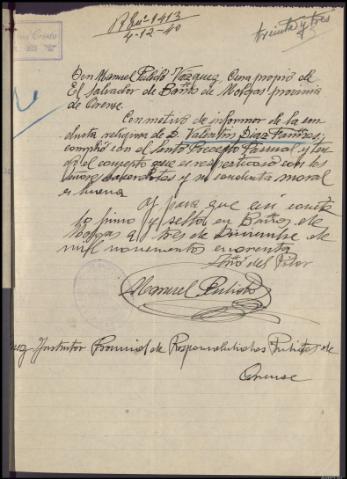 Rº nº 1413
4-12-40
treinta y tres
Don Manuel Pulido Vázquez Cura propio de
El Salvador de Baños de Molgas provincia
de Orense.
Con motivo de informar de la con
ducta religiosa de D. Valentín Díaz
cumplió con el Santo Precepto Pascual y
el concepto que es respetuoso con los
Señores Sacerdotes y su conducta moral
es buena
Y para que así conste
lo firmo y sello en Baños de
Molgas a tres de Diciembre de
mil novecientos cuarenta
Año del Pilar
Manuel Pulido
Instructor Provincial de Responsabilidades Políticas de
Orense